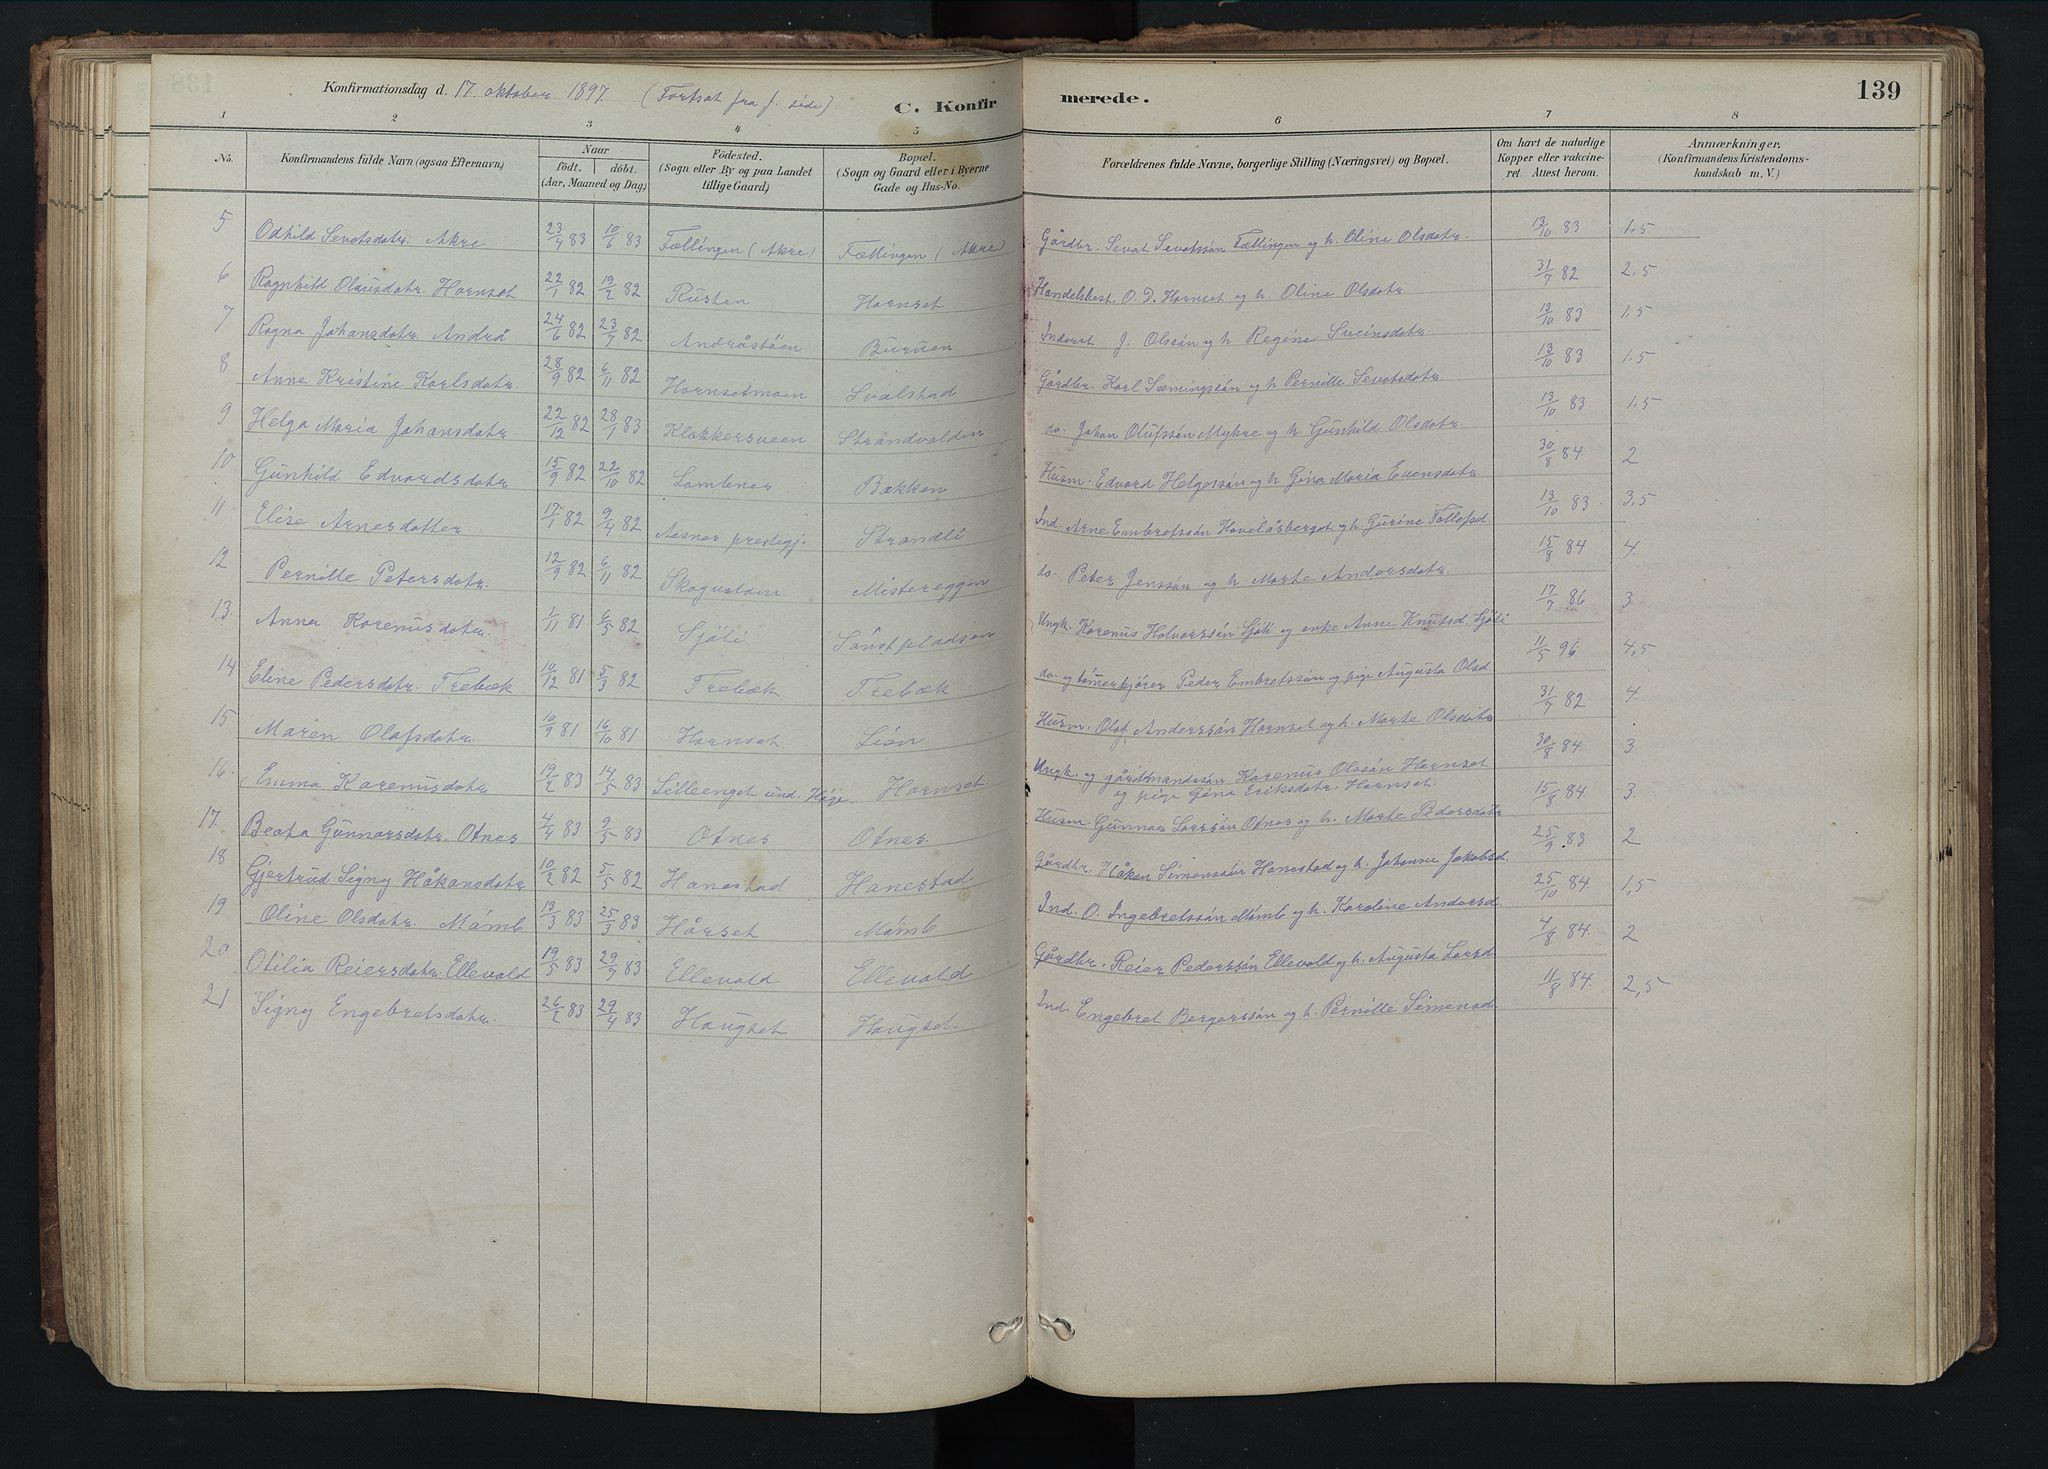 Konfirmationsdag d. 17 oktober 1897. (Fortsat fra f. side). C. Konfirmerede. 139
1 2 3 4 5 6 7 8
No. Konfirmandens fulde Navn (ogsaa Efternavn) Naar født. døbt. (Aar, Maaned og Dag) Födested. (Sogn eller By og paa Landet tillige Gaard) Bopæl. (Sogn og Gaard eller i Byerne Gade og Hus-No. Forældrenes fulde Navne, borgerlige Stilling (Næringsvei) og Bopæl. Om havt de naturlige Kopper eller vakcineret. Attest herom. Anmærkninger. (Konfirmandens Kristendomskundskab m. V.)
5 Odhild Sevatsdatr. Akre 23/4 83 10/6 83 Fællingen (Akre) Fællingen (Akre) Gårdbr. Sevat Sevatssøn Fællingen og h. Oline Olsdatr. 13/10 83 1.5
6 Ragnhild Olausdatr. Hornset 22/1 82 19/2 82 Rusten Hornset Handelsbest. O. D. Hornset og h. Oline Olsdatr. 31/7 82 2.5
7 Ragna Johansdatr. Andrå 24/6 82 23/7 82 Andråstøen Buruen Inderst J. Olssøn og h. Regine Sveinsdatr. 13/10 83 1.5
8 Anne Kristine Karlsdatr. 28/9 82 6/11 82 Hornsetmoen Svalstad Gårdbr. Karl Sæmingssøn og h. Pernille Sevatsdatr. 13/10 83 1.5
9 Helga Maria Johansdatr. 22/12 82 28/1 83 Klokkersveen Strandvolden do. Johan Olufssøn Myhre og h. Gunhild Olsdatr. 13/10 83 1.5
10 Gunhild Edvardsdatr 15/9 82 22/10 82 Lombnes Bakken Husm. Edvard Helgessøn og h. Gina Maria Evensdatr. 30/8 84 2
11 Elise Arnesdatter 17/1 82 9/4 82 Aasnes prestegj. Strandli Ind. Arne Embretssøn Hovelåsberget og h. Gurine Tollefsd. 13/10 83 3,5
12 Pernille Petersdatr. 12/9 82 6/11 82 Skogustam Mistereggen do. Peter Jenssøn og h. Marte Andersdatr. 15/8 84 4.
13. Anna Karenusdatr. 1/11 81 6/5 82 Sjöli Sönstpladsen Ungk. Karenus Halvorssøn Sjöli og enke Anne Knutsd. Sjöli 17/7 86 3
14 Eline Pedersdatr. Trebæk 10/12 81 5/3 82 Trebæk Trebæk do. og tömerkjörer Peder Embretssøn og pige Augusta Olsd. 11/5 96 4,5
15 Maren Olafsdatr. 10/9 81 16/10 81 Hornset Lien Husm. Olaf Anderssøn Hornset og h. Marte Olsdatr 31/7 82 4.
16. Emma Karenusdatr 19/2 83 14/5 83 Lilleenget und. Höye. Hornset. Ungk. og gårdmandssøn Karenus Olssøn Hornset
og pige Gina Eriksdatr. Hornset. 30/8 84. 3
17. Beata Gunnarsdatr. Otnes 4/4 83 9/5 83 Otnes Otnes. Husm. Gunnar Larssøn Otnes og h. Marte Pedersdatr 15/8 84 3.
18 Gjertrud Signy Håkansdatr 10/2 82 5/5 82 Hanestad Hanestad Gårdbr. Håkan Simenssøn Hanestad og h. Johanne Jakobsd. 25/9 83 2
19 Oline Olsdatr. Mömb 13/3 83 25/3 83 Hårset Mömb Ind. O. Ingebretssøn Mömb og h. Karoline Andersd. 25/10 84. 1,5
20 Otilia Reiersdatr. Ellevold 19/5 83 29/7 83 Ellevold Ellevold Gårdbr. Reier Pederssøn Ellevold og h. Augusta Larsd 4/8 84. 2
21 Signy Engebretsdatr. 26/2 83 29/4 83 Haugset Haugset. Ind. Engebret Bergerssøn og h. Pernille Simensd. 11/8 84. 2,5